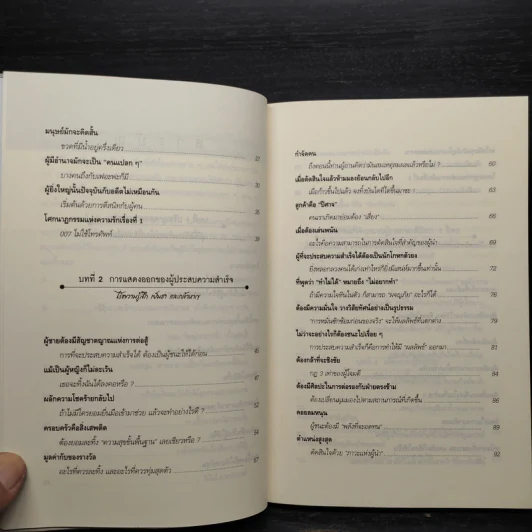 มนุษย์มักจะคิดสั้น
ขวดที่มีน้ำอยู่ครึ่งเดียว
ผู้มีอำนาจมักจะเป็น "คนแปลก ๆ"
บางคนถึงกับเพอะพะก็มี
ผู้ยิ่งใหญ่นั้นปัจจุบันกับอดีตไม่เหมือนกัน
เริ่มต้นด้วยการตีสนิทกับผู้คน
โศกนาฏกรรมแห่งความรักเรื่องที่ 1
007 ไม่ใช้โทรศัพท์
บทที่ 2 การแสดงออกของผู้ประสบความสำเร็จ
ผู้ชายต้องมีสัญชาตญาณแห่งการต่อสู้
การที่จะประสบความสำเร็จได้ ต้องเป็นผู้ชนะให้ได้ก่อน
แม้เป็นผู้หญิงก็ไม่ละเว้น
เธอจะทิ้งฉันได้ลงคอหรือ ?
ผลักความโชคร้ายกลับไป
ถ้าไม่มีใครยอมยื่นมือเข้ามาช่วย แล้วจะทำอย่างไรดี ?
ครอบครัวคือสิ่งเสพติด
ต้องยอมละทิ้ง "ความสุขขั้นพื้นฐาน" เลยเชียวหรือ ?
มูลค่ากับของรางวัล
อะไรที่ควรละทิ้ง และอะไรที่ควรทุ่มสุดตัว
กำจัดคน
ถึงตอนนี้ท่านผู้อ่านคิดว่ามันสมเหตุสมผลแล้วหรือไม่ ? 60
เมื่อตัดสินใจแล้วห้ามมองย้อนกลับไปอีก
เมื่อก้าวขึ้นไปแล้ว จงทิ้งบันไดที่ไต่ขึ้นมาซะ ! 63
ลูกค้าคือ "ปีศาจ"
คนเราเกิดมาย่อมต้อง "เสี่ยง" 66
เมื่อต้องเล่นพนัน
อะไรคือความสามารถในการตัดสินใจที่สำคัญของผู้นำ 69
ผู้ที่จะประสบความสำเร็จได้ต้องเป็นนักโกหกตัวยง
ยิ่งหลอกลวงคนได้เก่งเท่าไรก็ยิ่งมีเสน่ห์มากขึ้นเท่านั้น 72
ที่พูดว่า "ทำไม่ได้" หมายถึง "ไม่อยากทำ"
ถ้ามีความใจสันในตัว ก็สามารถ "ผจญภัย" อะไรก็ได้ 76
ต้องมีความมั่นใจ วางวิสัยทัศน์อย่างเป็นรูปธรรม
"การหมั่นซักซ้อมก่อนของจริง" จะให้ผลลัพธ์ที่แตกต่าง 79
ไม่ว่าจะอย่างไรก็ต้องชนะไปเรื่อย ๆ
การประสบความสำเร็จก็คือการทำให้มี "ผลลัพธ์" ออกมา 82
ต้องกล้าที่จะชิงชัย
กฎ 3 เท่าของผู้โจมตี 84
ต้องมีศิลปะในการต่อรองกับฝ่ายตรงข้าม
ต้องเปลี่ยนมุมมองไปตามสถานการณ์ที่เกิดขึ้น 86
คอยลมหนุน
ผู้ชนะต้องมี "พลังที่จะอดทน" 89
ตำแหน่งสูงสุด
ตัดสินใจด้วย "ภาวะแห่งผู้นำ" 92